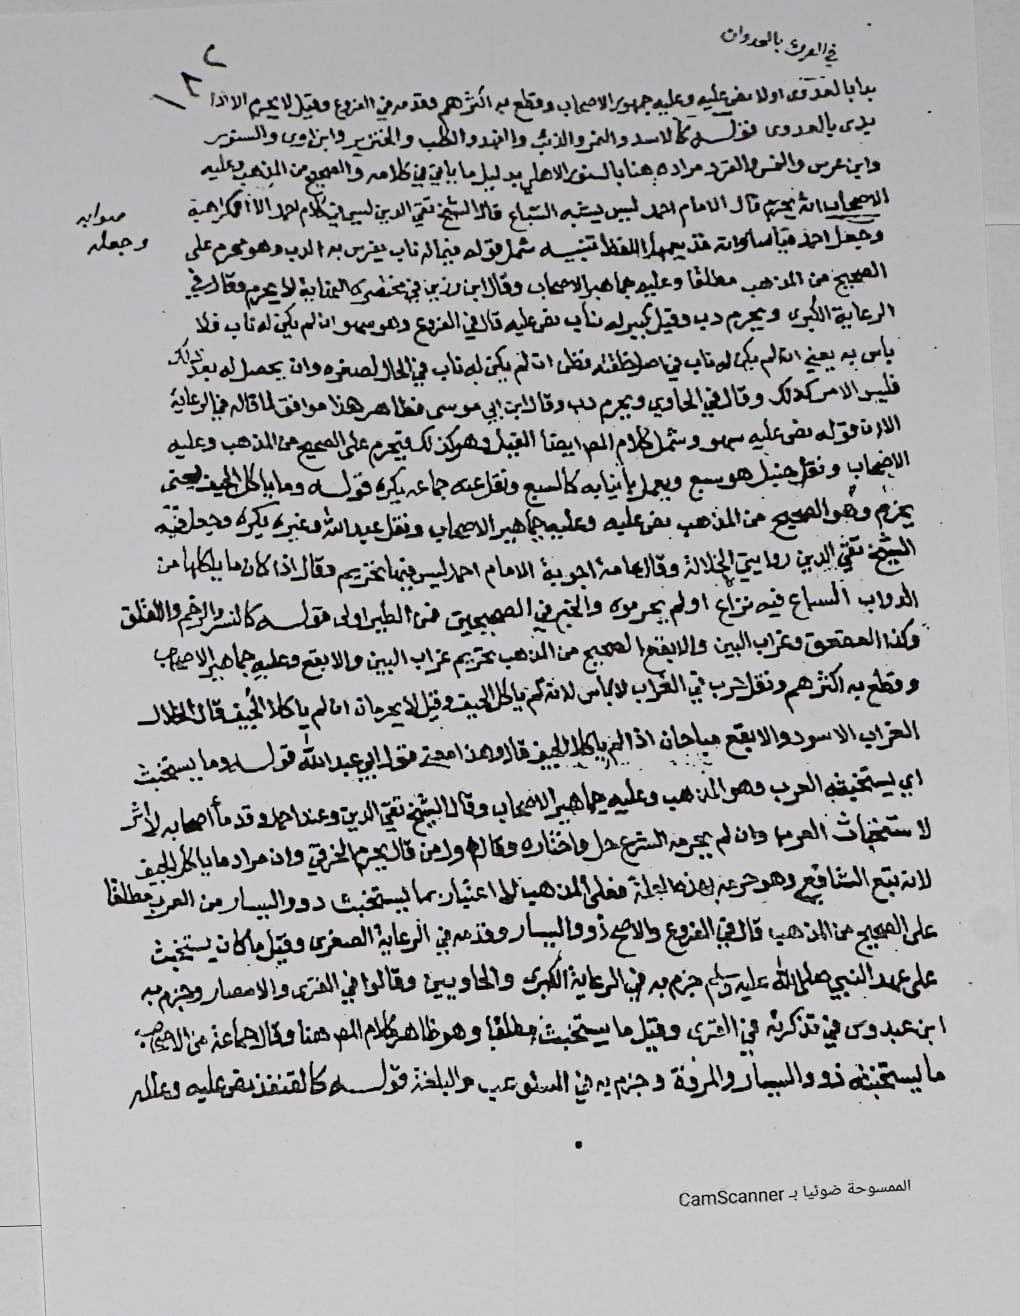 في الفروع بالعدوان
١٨٢
بدا بالعدوى اولا نص عليه وعليه جمهور الاصحاب وقطع به اكثرهم وقدمه في الفروع وقيل لا يحرم الا اذا
بدى بالعدوى قوله كالاسد والنمر والذئب والفهد والكلب والخنزير وابن اوى والسنور
وابن عرس والنمس والقرد مراده هنا بالسنور الاهلي بدليل ما ياتي في كلامه والصحيح من المذهب وعليه
الاصحاب انه يحرم قال الامام احمد ليس يشبه السباع قال الشيخ تقي الدين ليس في كلام احمد الا الكراهة
صوابه
وجعله
وجعل احمد قياسا وانه قد يعمها اللفظ تنبيه شمل قوله فيما له ناب يفرس به الدب وهو محرم على
الصحيح من المذهب مطلقا وعليه جماهير الاصحاب وقال ابن رزين في مختصره النهاية لا يحرم وقال في
الرعاية الكبرى ويحرم دب وقيل كبير له ناب نص عليه قال في الفروع وهو سهو ان لم يكن له ناب فلا
باس به يعني ان لم يكن له ناب في اصل خلقته فظن ان لم يكن له ناب في الحال لصغره وان يحصل له بعد ذلك
فليس الامر كذلك وقال في الحاوي ويحرم دب وقال ابن ابي موسى فظاهر هذا موافق لما قاله في الرعاية
الا ان قوله نص عليه سهو وشمل كلام المص ايضا الفيل وهو كذلك فيحرم على الصحيح من المذهب وعليه
الاصحاب ونقل حنبل هو سبع ويعمل بانيابه كالسبع ونقل عنه جماعة يكره قوله وما ياكل الجيف يعني
يحرم وهو الصحيح من المذهب نص عليه وعليه جماهير الاصحاب ونقل عبد الله وغيره يكره وجعل فيه
الشيخ تقي الدين روايتي الجلالة وقال عامة اجوبة الامام احمد ليس فيها تحريم وقال اذا كان ما ياكلها من
الدواب السباع فيه نزاع او لم يحرموه والخبر في الصحيحين فمن الطير اولى قوله كالنسر والرخم واللقلق
وكذا العقعق وغراب البين والابقع الصحيح من المذهب تحريم غراب البين والابقع وعليه جماهير الاصحاب
وقطع به اكثرهم ونقل حرب في الغراب لا باس لانه لم ياكل الجيف وقيل لا يحرمان ان لم ياكلا الجيف قال الخلال
الغراب الاسود والابقع مباحان اذا لم ياكلا الجيف قال وهذا معنى قول ابي عبد الله قوله وما يستخبث
اي يستخبثه العرب وهو المذهب وعليه جماهير الاصحاب وقال الشيخ تقي الدين وعند احمد وقدماء اصحابه لا اثر
لاستخباث العرب وان لم يحرمه الشرع حل واختاره وقال اول من قال يحرم الخرقي وان مراد ما ياكل الجيف
لانه تبع الشافعي وهو حرمه بهذه العلة فعلى المذهب الاعتبار بما يستخبث ذوو اليسار من العرب مطلقا
على الصحيح من المذهب قال في الفروع والاصح ذوو اليسار وقدمه في الرعاية الصغرى وقيل ما كان يستخبث
على عهد النبي صلى الله عليه وسلم جزم به في الرعاية الكبرى والحاويين وقالوا في القرى والامصار وجزم به
ابن عبدوس في تذكرته في القرى وقيل ما يستخبث مطلقا وهو ظاهر كلام المص هنا وقال جماعة من الاصحاب
ما يستخبثه ذوو اليسار والمروة وجزم به في المستوعب والبلغة قوله كالقنفذ نص عليه وعلله
الممسوحة ضوئيا بـ CamScanner